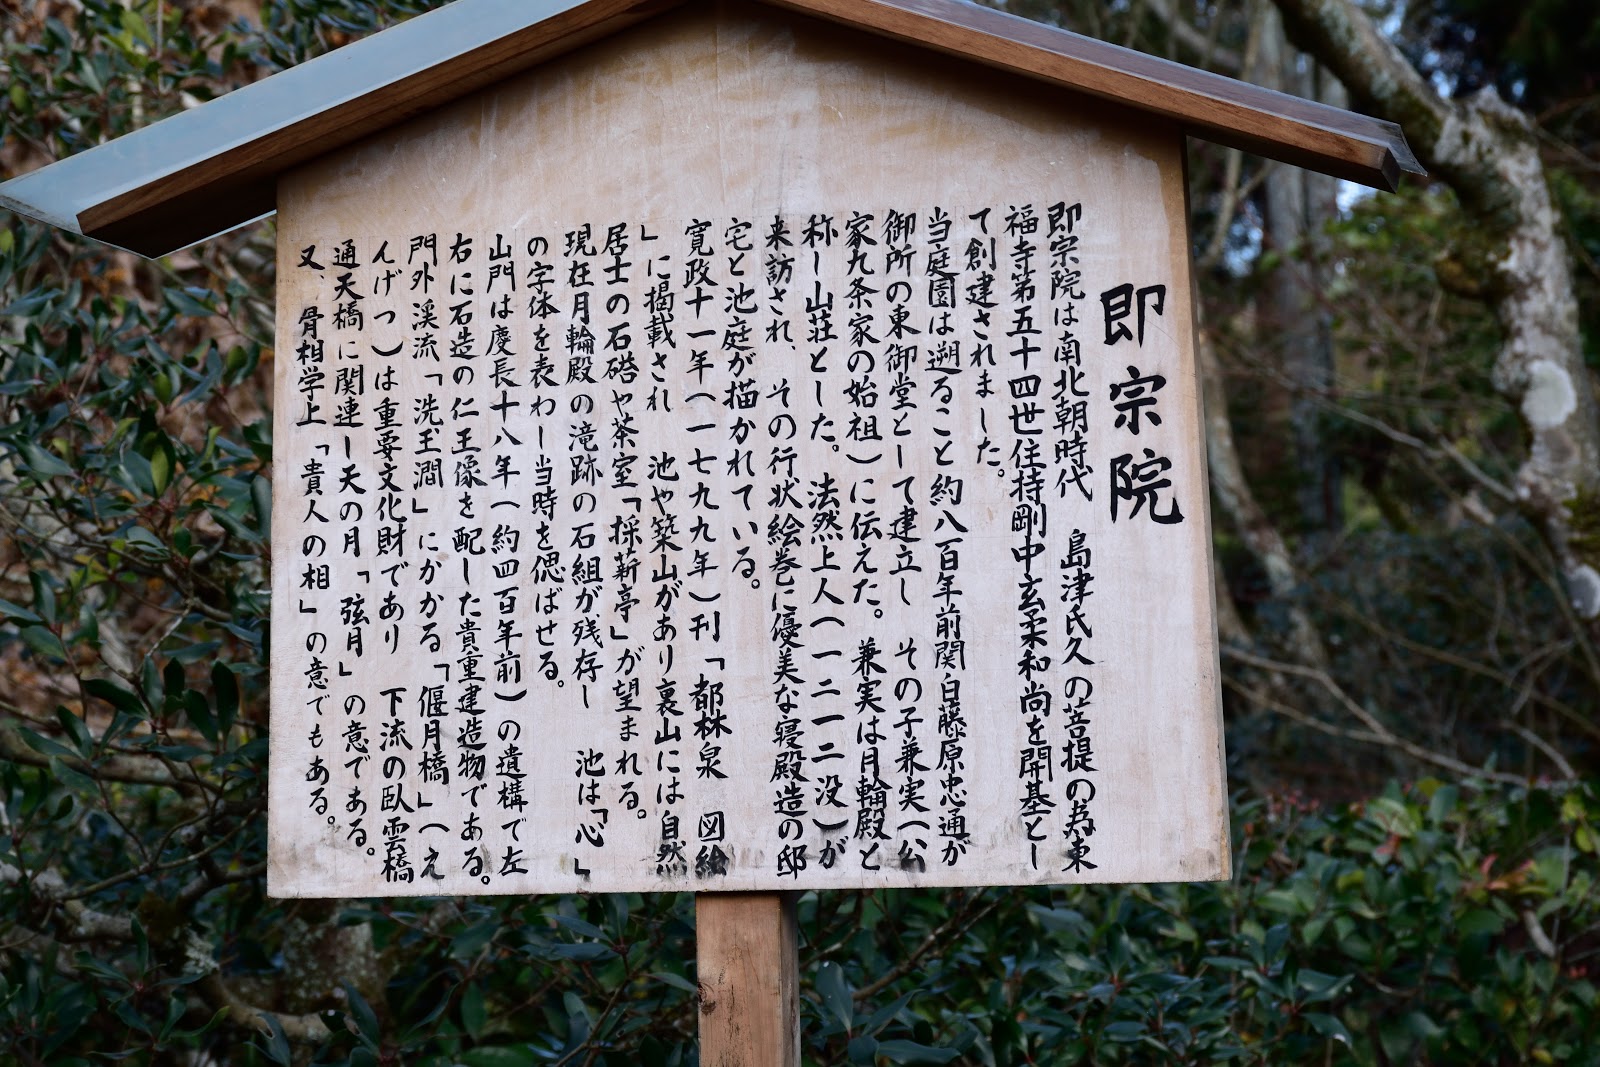 即宗院
即宗院は南北朝時代　島津氏久の菩提の為東
福寺第五十四世住持剛中玄柔和尚を開基とし
て創建されました。
当庭園は遡ること約八百年前関白藤原忠通が
御所の東御堂として建立し　その子兼実(公
家九条家の始祖)に伝えた。　兼実は月輪殿と
称し山荘とした。法然上人(一二一二没)が
来訪され、その行状絵巻に優美な寝殿造の邸
宅と池庭が描かれている。
寛政十一年(一七九九年)刊「都林泉　図絵
」に掲載され　池や築山があり裏山には自然
居士の石碆や茶室「採薪亭」が望まれる。
現在月輪殿の滝跡の石組が残存し　池は「心」
の字体を表わし当時を偲ばせる。
山門は慶長十八年(約四百年前)の遺構で左
右に石造の仁王像を配した貴重建造物である。
門外渓流「洗玉澗」にかかる「偃月橋」(え
んげつ)は重要文化財であり　下流の臥雲橋
通天橋に関連し天の月「弦月」の意である。
又、骨相学上「貴人の相」の意でもある。